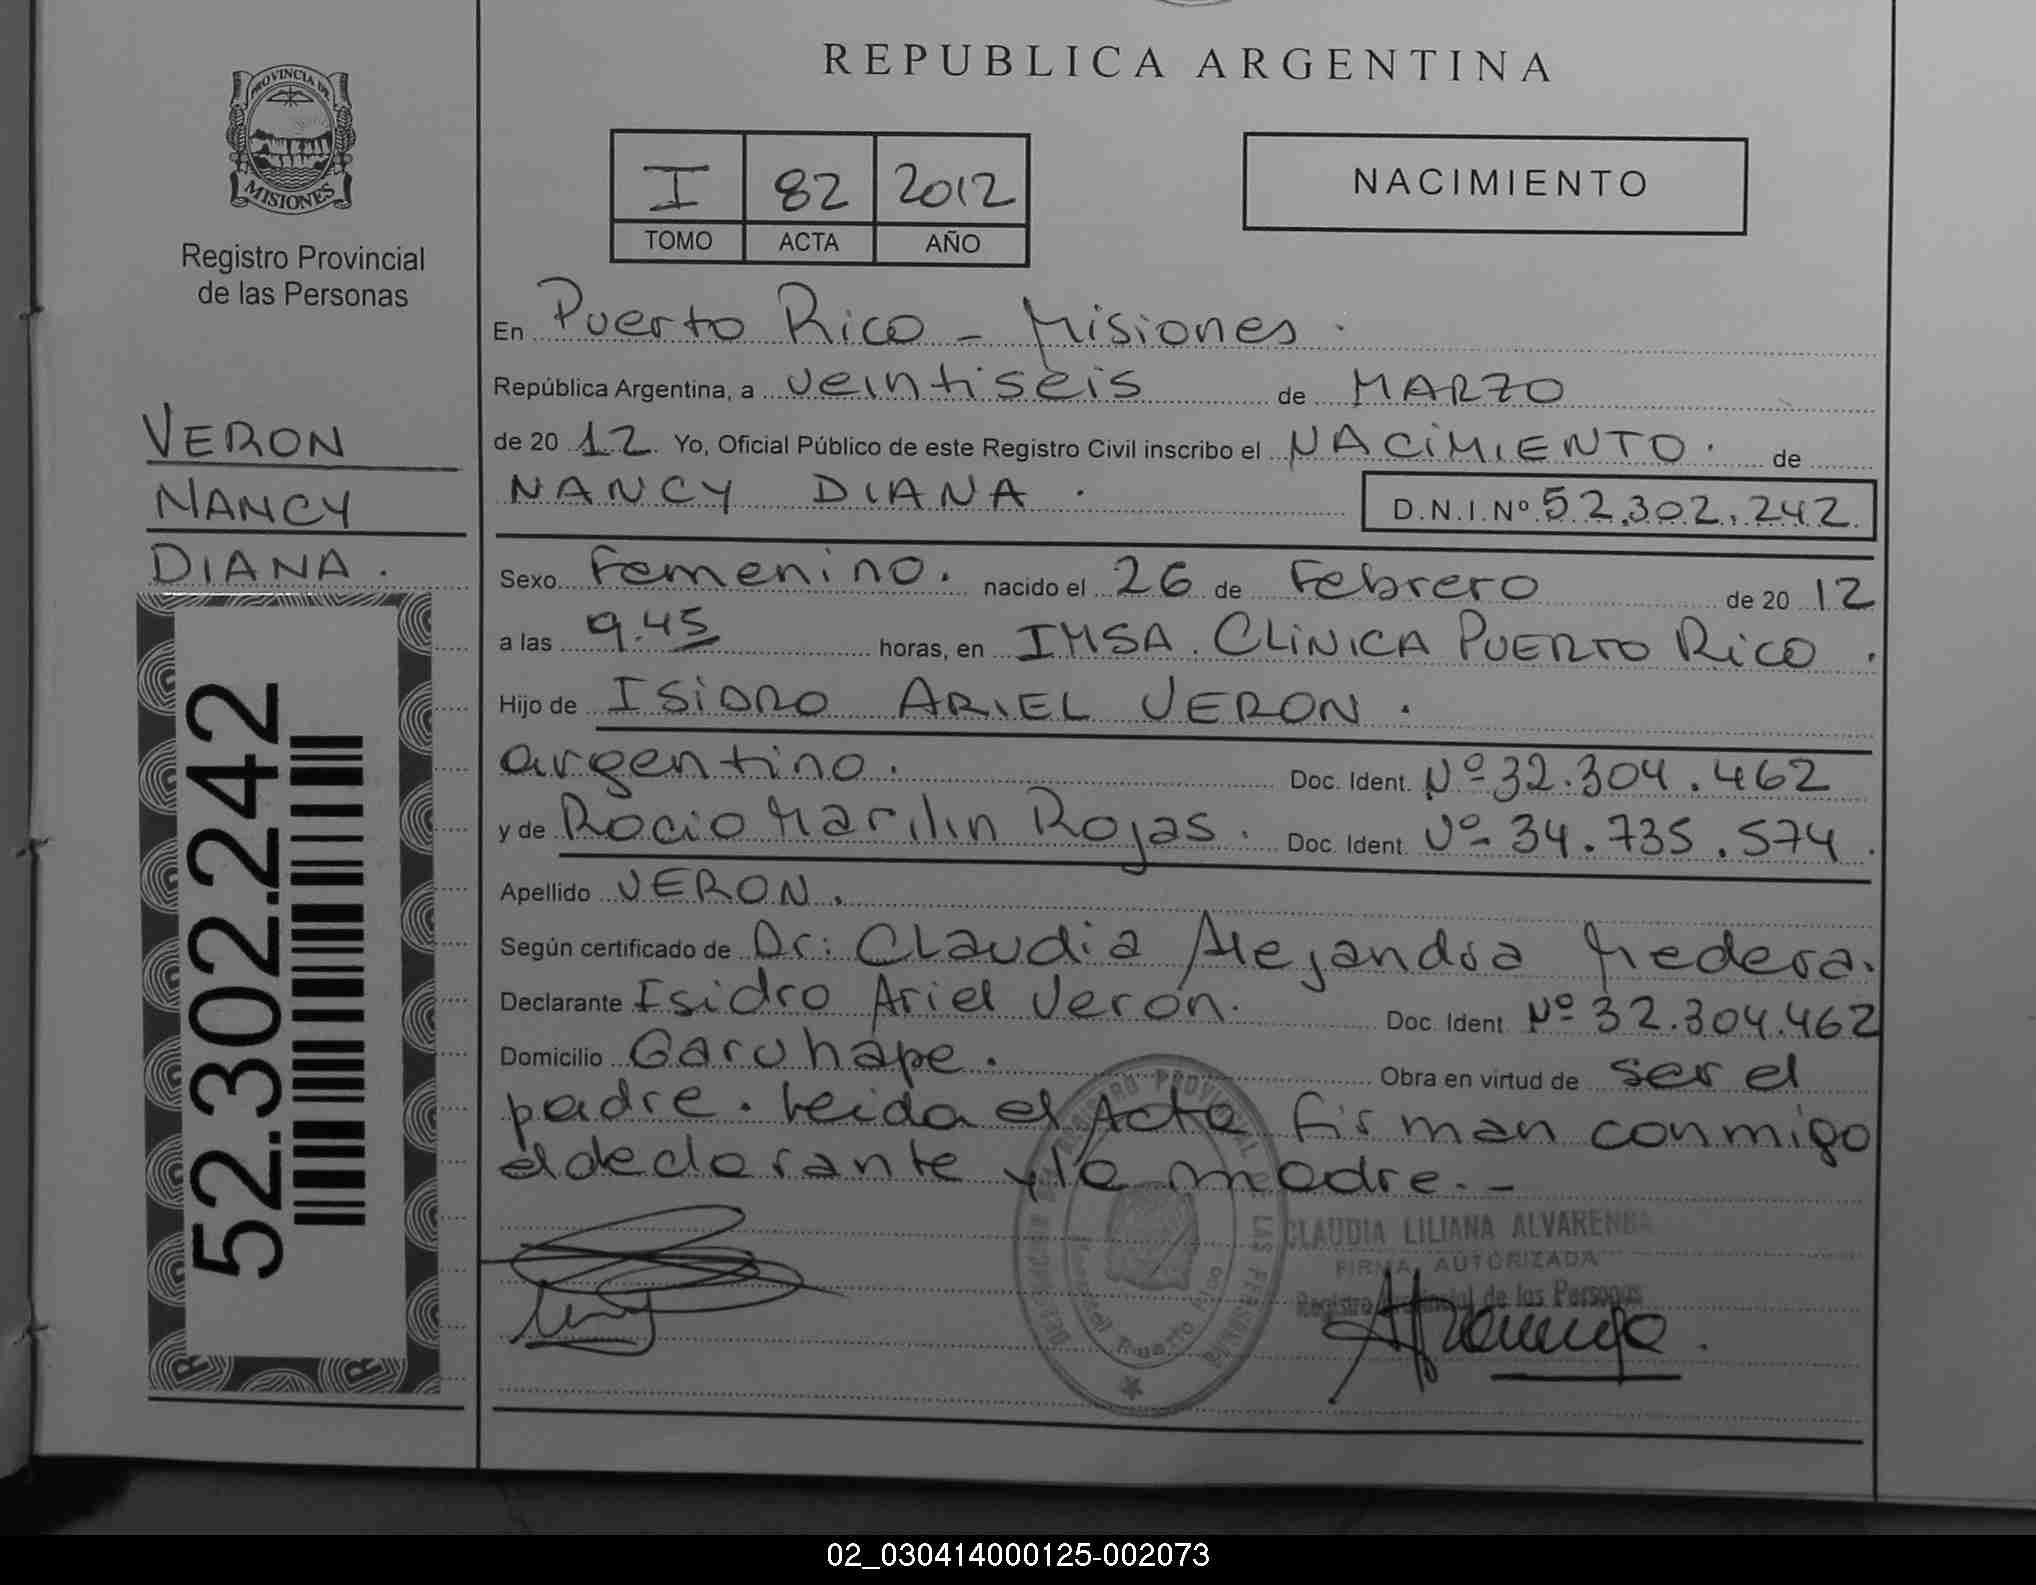 PROVINCIA DE
MISIONES
Registro Provincial
de las Personas
VERON
NANCY
DIANA.
52.302.242
REPUBLICA ARGENTINA
I 82 2012
TOMO ACTA AÑO
NACIMIENTO
En Puerto Rico - Misiones.
República Argentina, a veintiseis de MARZO
de 20 12 Yo, Oficial Público de este Registro Civil inscribo el NACIMIENTO. de
NANCY DIANA. D.N.I.Nº 52.302.242
Sexo Femenino. nacido el 26 de Febrero de 20 12
a las 9.45 horas, en IMSA. CLINICA PUERTO RICO.
Hijo de ISIDRO ARIEL VERON.
argentino. Doc. Ident. Nº 32.304.462
y de Rocio Marilin Rojas. Doc. Ident. Nº 34.735.574.
Apellido VERON.
Según certificado de Dr: Claudia Alejandra Medera.
Declarante Isidro Ariel Veron. Doc. Ident. Nº 32.304.462
Domicilio Garuhape. Obra en virtud de ser el
padre. Leida el Acta firman conmigo
el declarante y la madre. -
CLAUDIA LILIANA ALVARENGA
FIRMA AUTORIZADA
Registro Provincial de las Personas
REGISTRO PROVINCIAL DE LAS PERSONAS
Puerto Rico
02_030414000125-002073